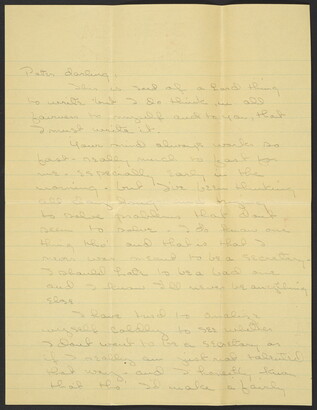 Peter darling,
This is sort of a hard thing
to write but I do think in all
fairness to myself and to you, that
I must write it.
Your mind always works so
fast - really much too fast for
me - especially early in the
morning - but I've been thinking
all trying
to solve problems that don't
seem to solve. I do know one
thing tho' and that is that I
never was meant to be a secretary.
I should hate to be a bad one
and I know I'll never be anything
else.
I have tried to analyze
myself coldly to see whether
I don't want to be a secretary or
if I really am just not talented
that way - and I honestly know
that tho' I'd make a fairly